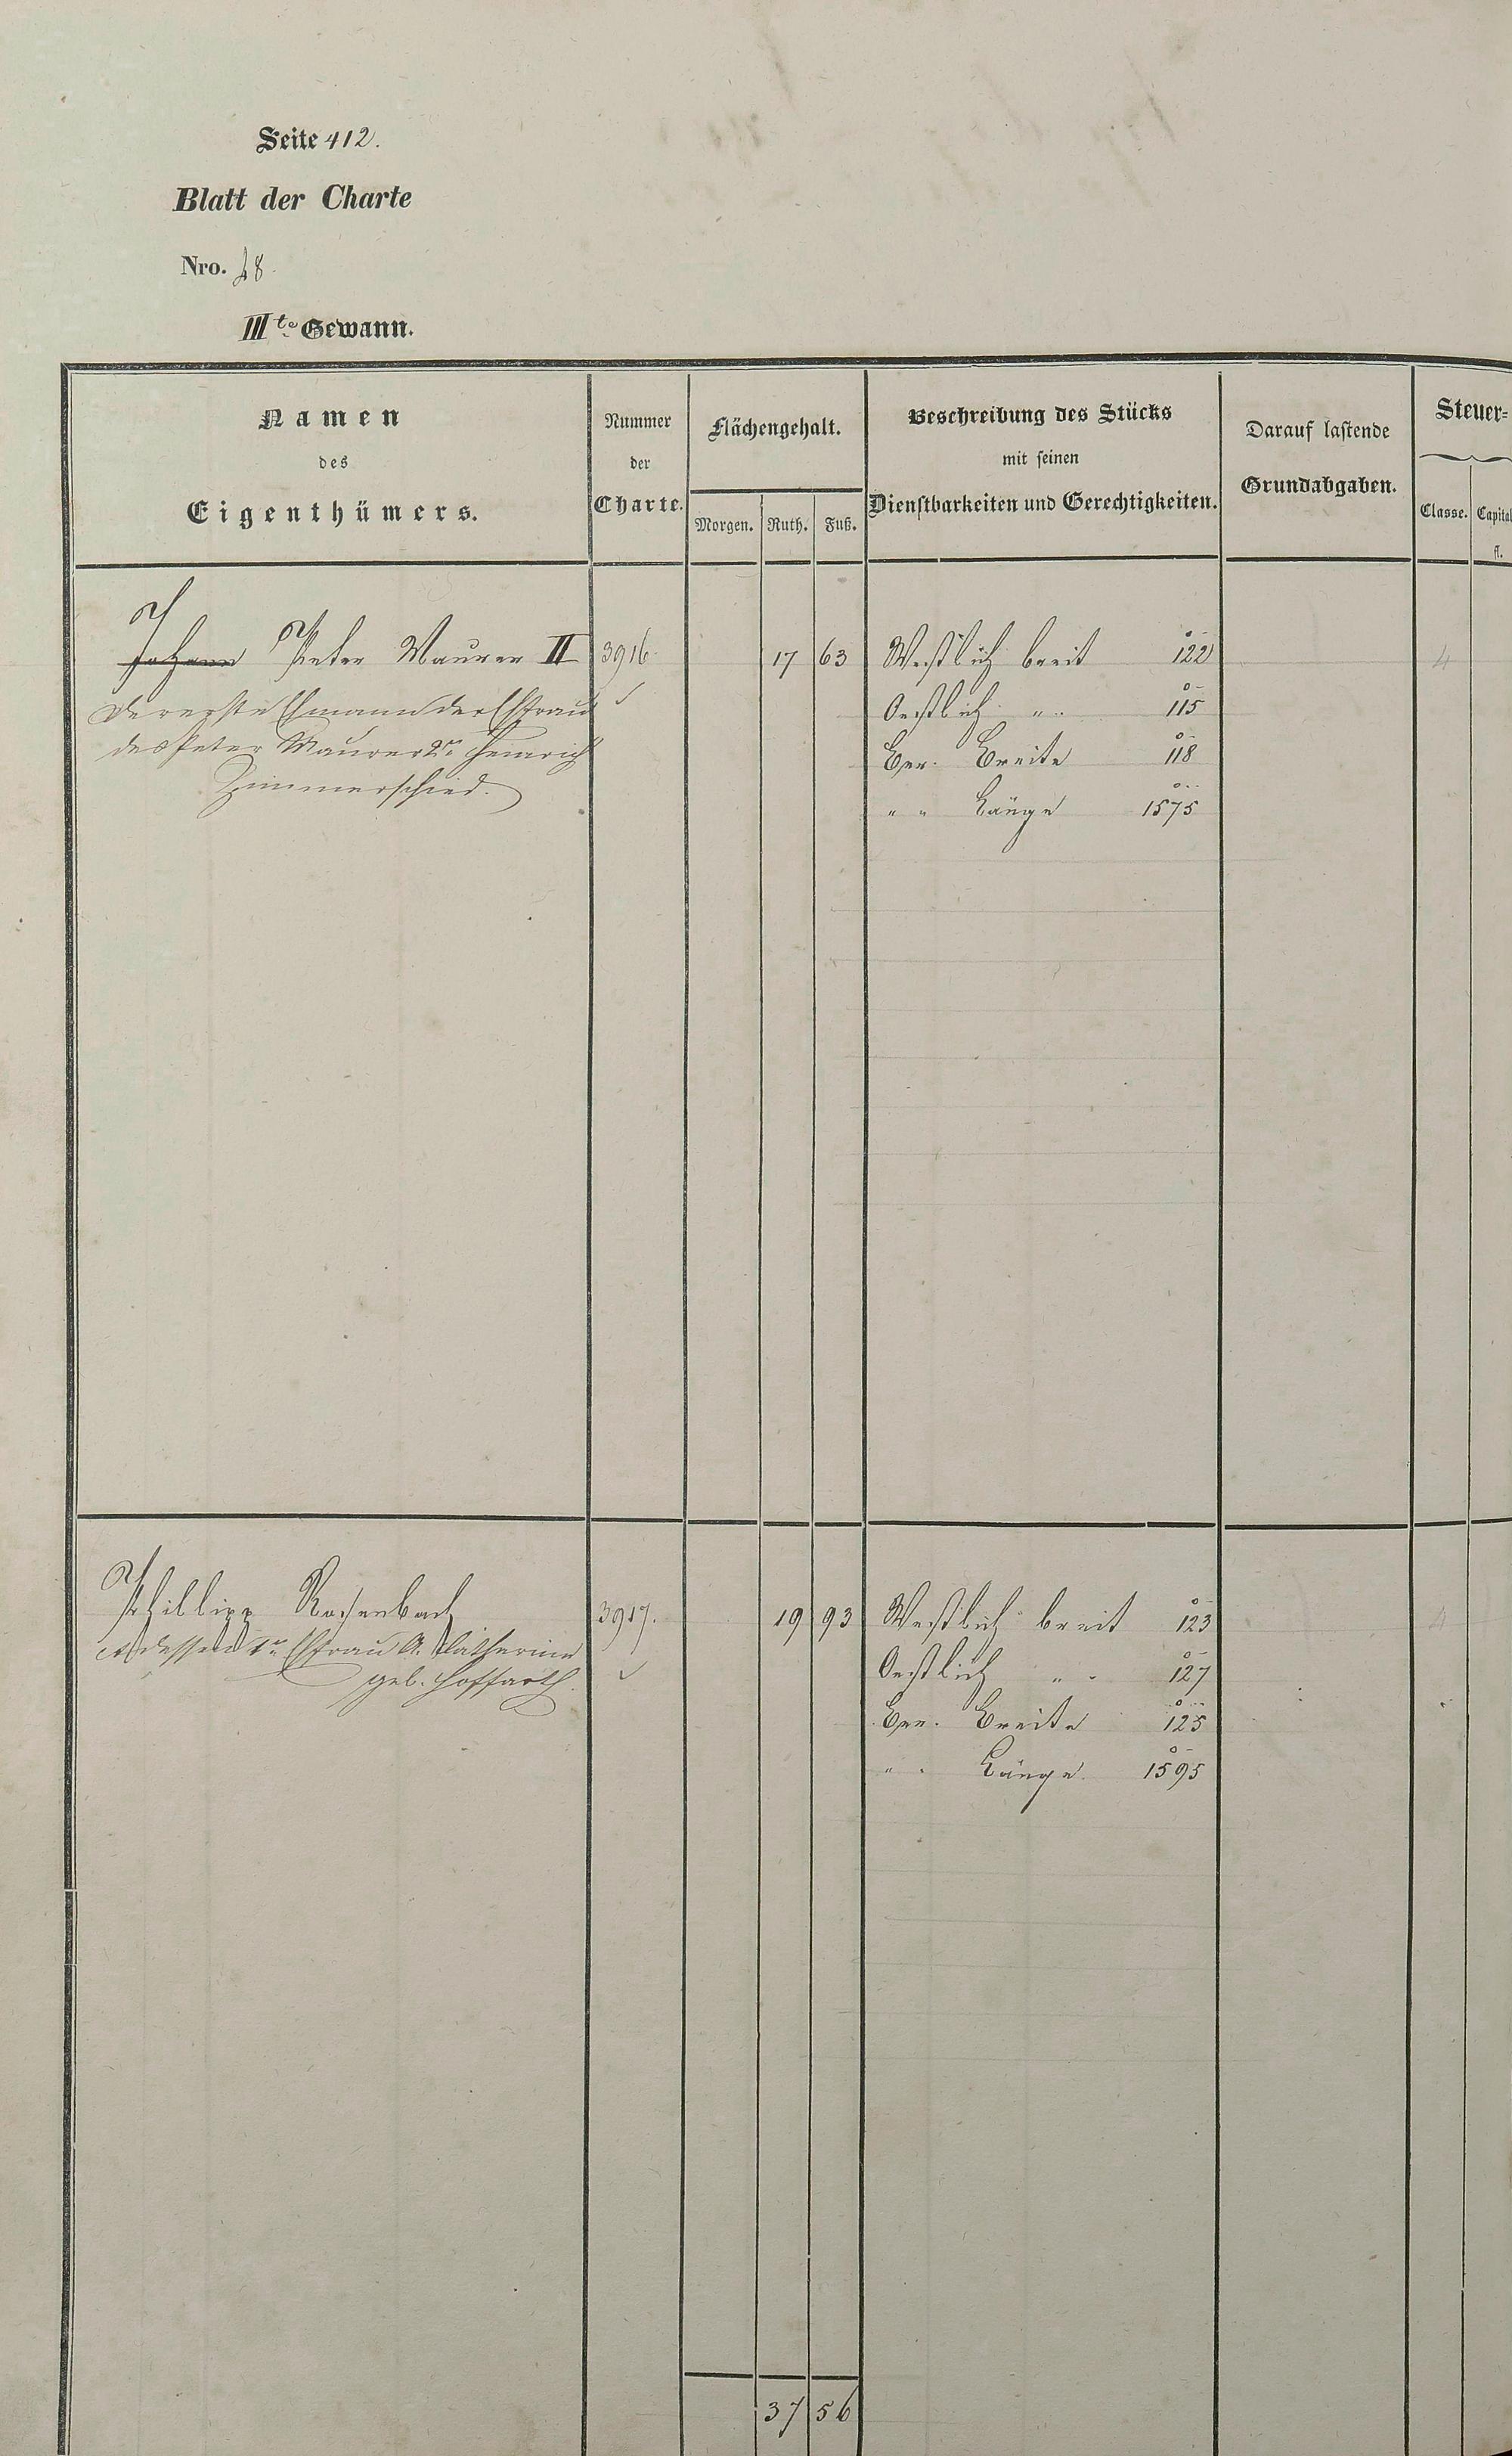 Seite 412.
Blatt der Charte
Nro. 48.
IIIte Gewann.
Namen
des
Eigenthümers.
Nummer
der
Charte.
Flächengehalt.
Morgen. Ruth. Fuß.
Beschreibung des Stücks
mit seinen
Dienstbarkeiten und Gerechtigkeiten.
Darauf lastende
Grundabgaben.
Steuer-
Classe. Capital
fl.
Johann Peter Maurer II 3916 17 63 Westlich breit 122 4
der erste Ehmann der Ehfrau Oestlich " 115
des Peter Maurer 2r Heinrich Ger. Breite 118
Zimmerschied. " " Länge 1575
Phillipp Rosenbach 3917. 19 93 Westlich breit 123 4
dessen 1r Ehfrau A. Catharina Oestlich " 127
geb. Hoffarth. Ger. Breite 125
" " Länge. 1595
37 56